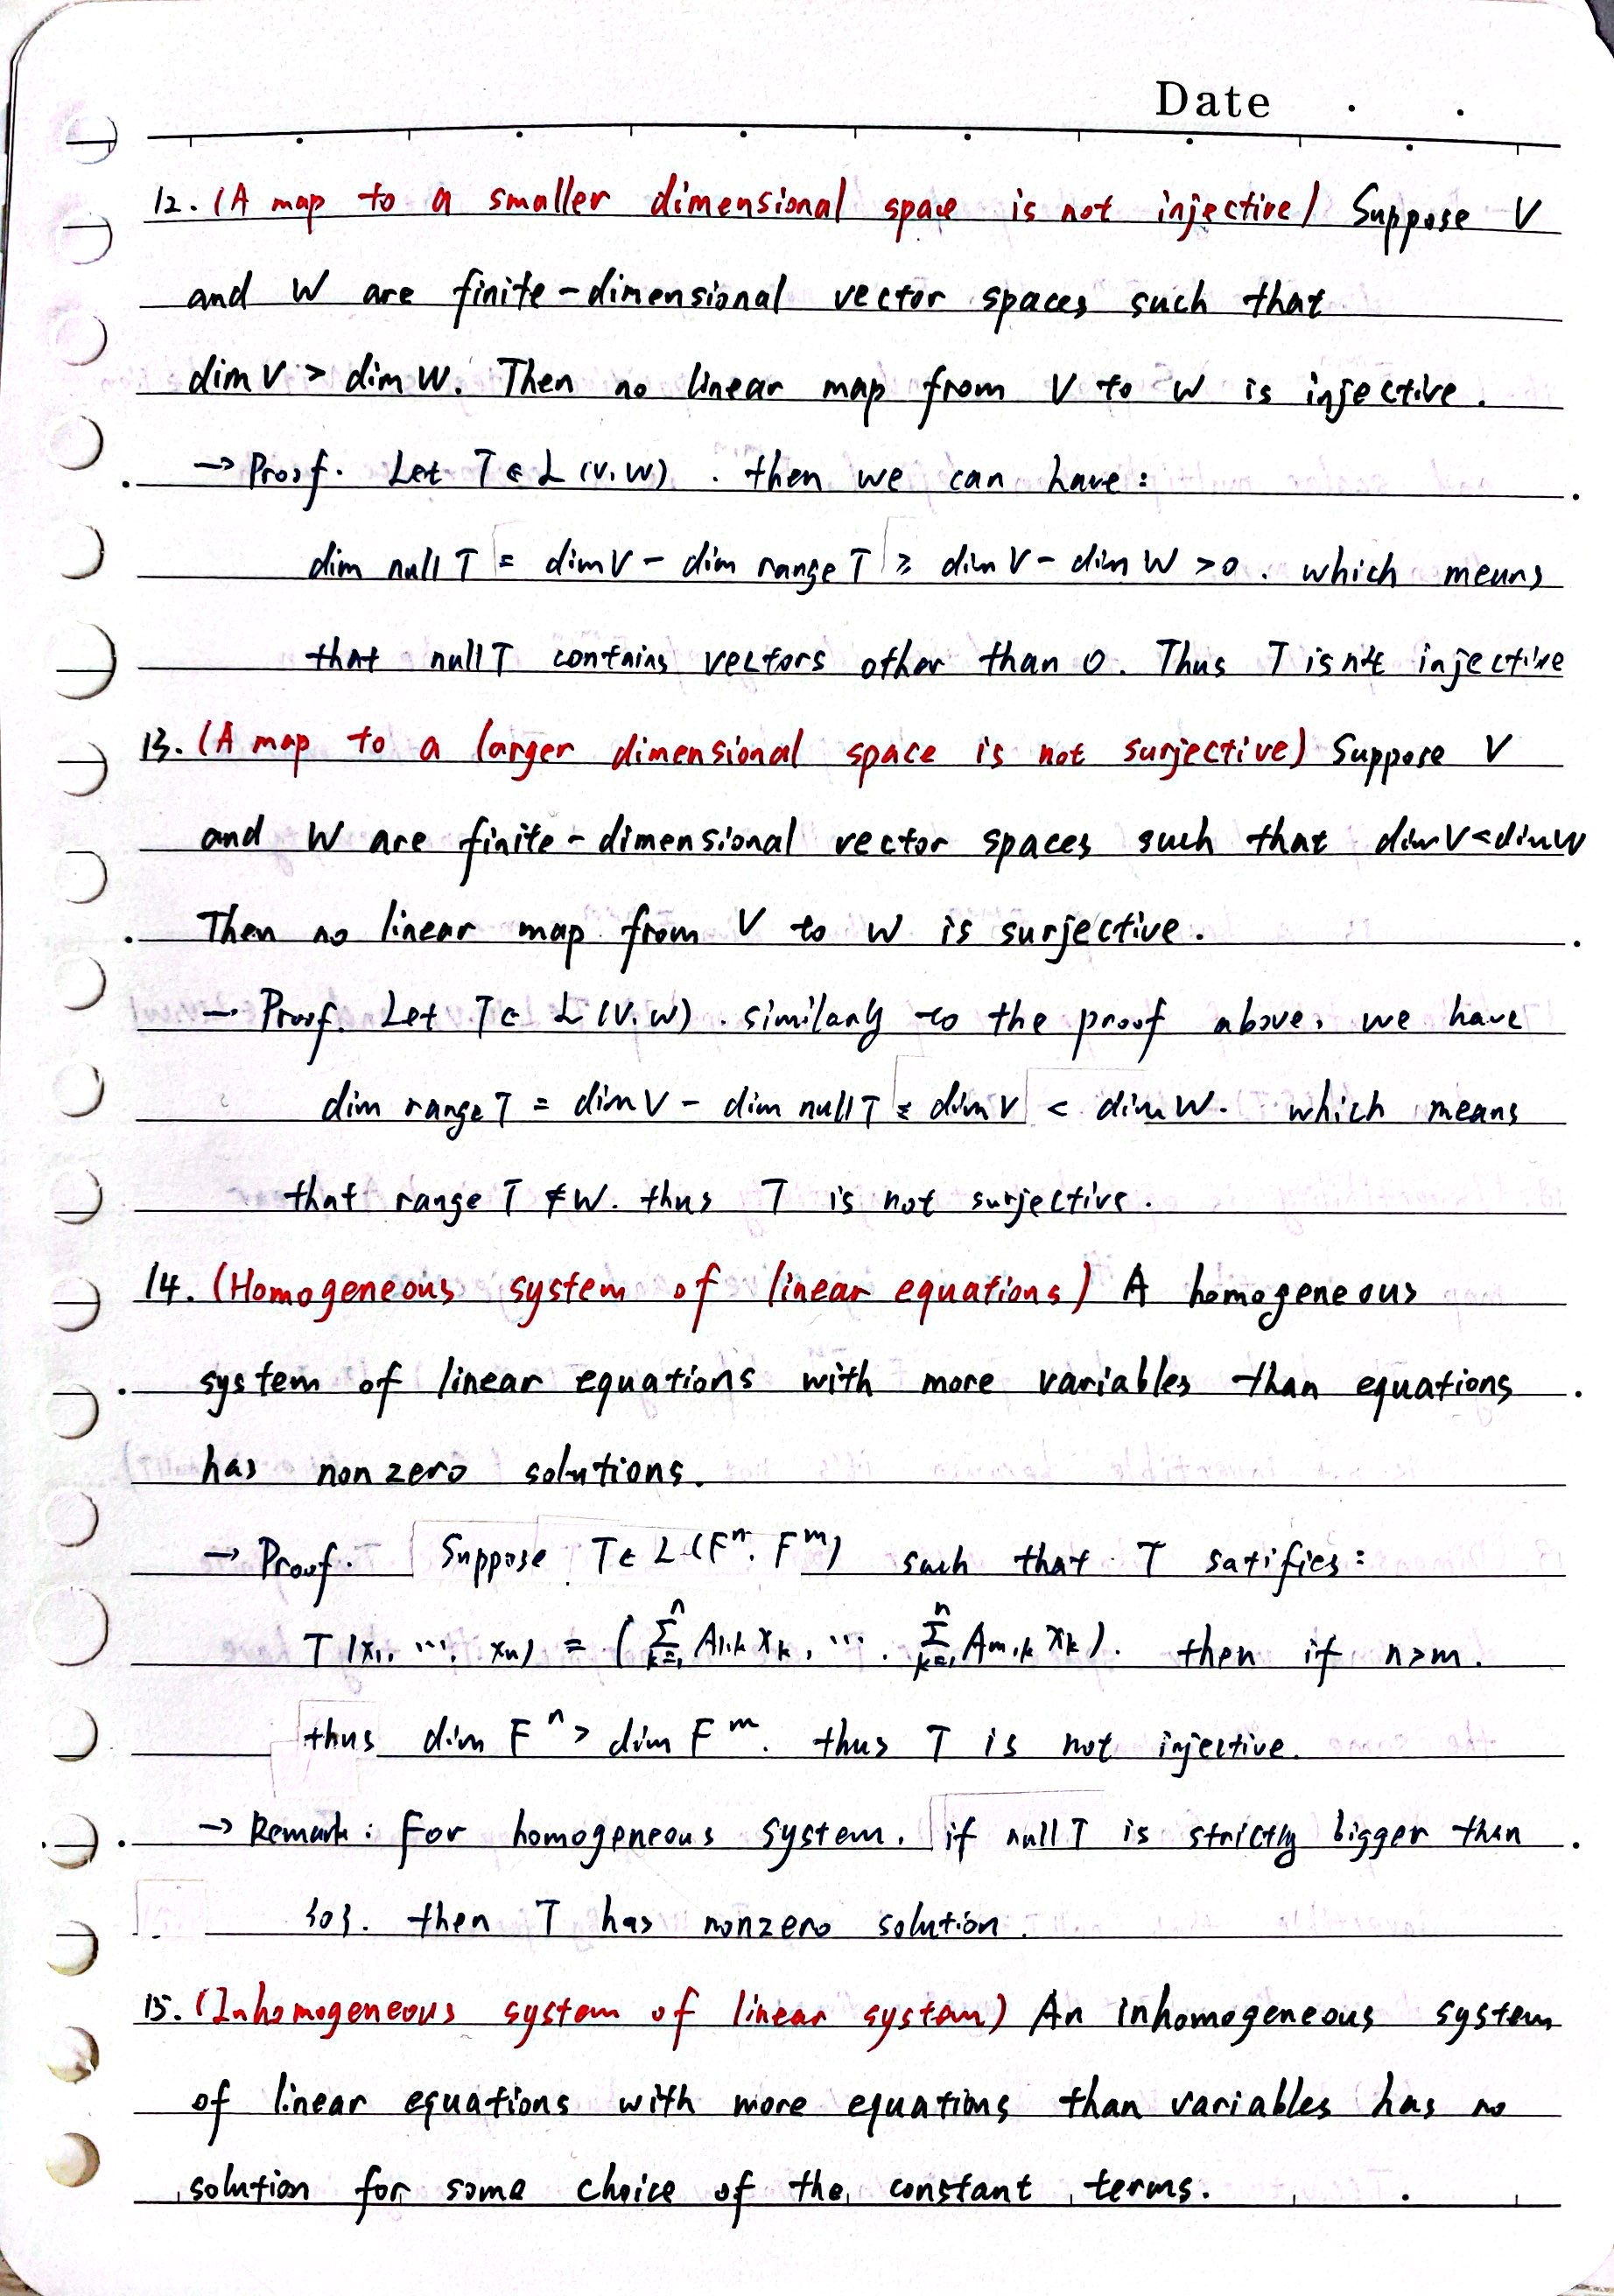 Date . .
12. (A map to a smaller dimensional space is not injective) Suppose V
and W are finite-dimensional vector spaces such that
dim V > dim W. Then no linear map from V to W is injective.
→ Proof. Let T ∈ L(V, W). then we can have:
dim null T = dim V - dim range T ≥ dim V - dim W > 0. which means
that null T contains vectors other than 0. Thus T isn't injective
13. (A map to a larger dimensional space is not surjective) Suppose V
and W are finite-dimensional vector spaces such that dim V < dim W
Then no linear map from V to W is surjective.
→ Proof. Let T ∈ L(V, W). similarly to the proof above, we have
dim range T = dim V - dim null T ≤ dim V < dim W. which means
that range T ≠ W. thus T is not surjective.
14. (Homogeneous system of linear equations) A homogeneous
system of linear equations with more variables than equations
has nonzero solutions.
→ Proof. Suppose T ∈ L(Fⁿ, Fᵐ) such that T satifies:
T(x₁, ⋯, xₙ) = (∑ₖ₌₁ⁿ A₁,ₖ xₖ, ⋯, ∑ₖ₌₁ⁿ Aₘ,ₖ xₖ). then if n>m.
thus dim Fⁿ > dim Fᵐ. thus T is not injective.
→ Remark: For homogeneous system, if null T is strictly bigger than
{0}. then T has nonzero solution.
15. (Inhomogeneous system of linear system) An inhomogeneous system
of linear equations with more equations than variables has no
solution for some choice of the constant terms.